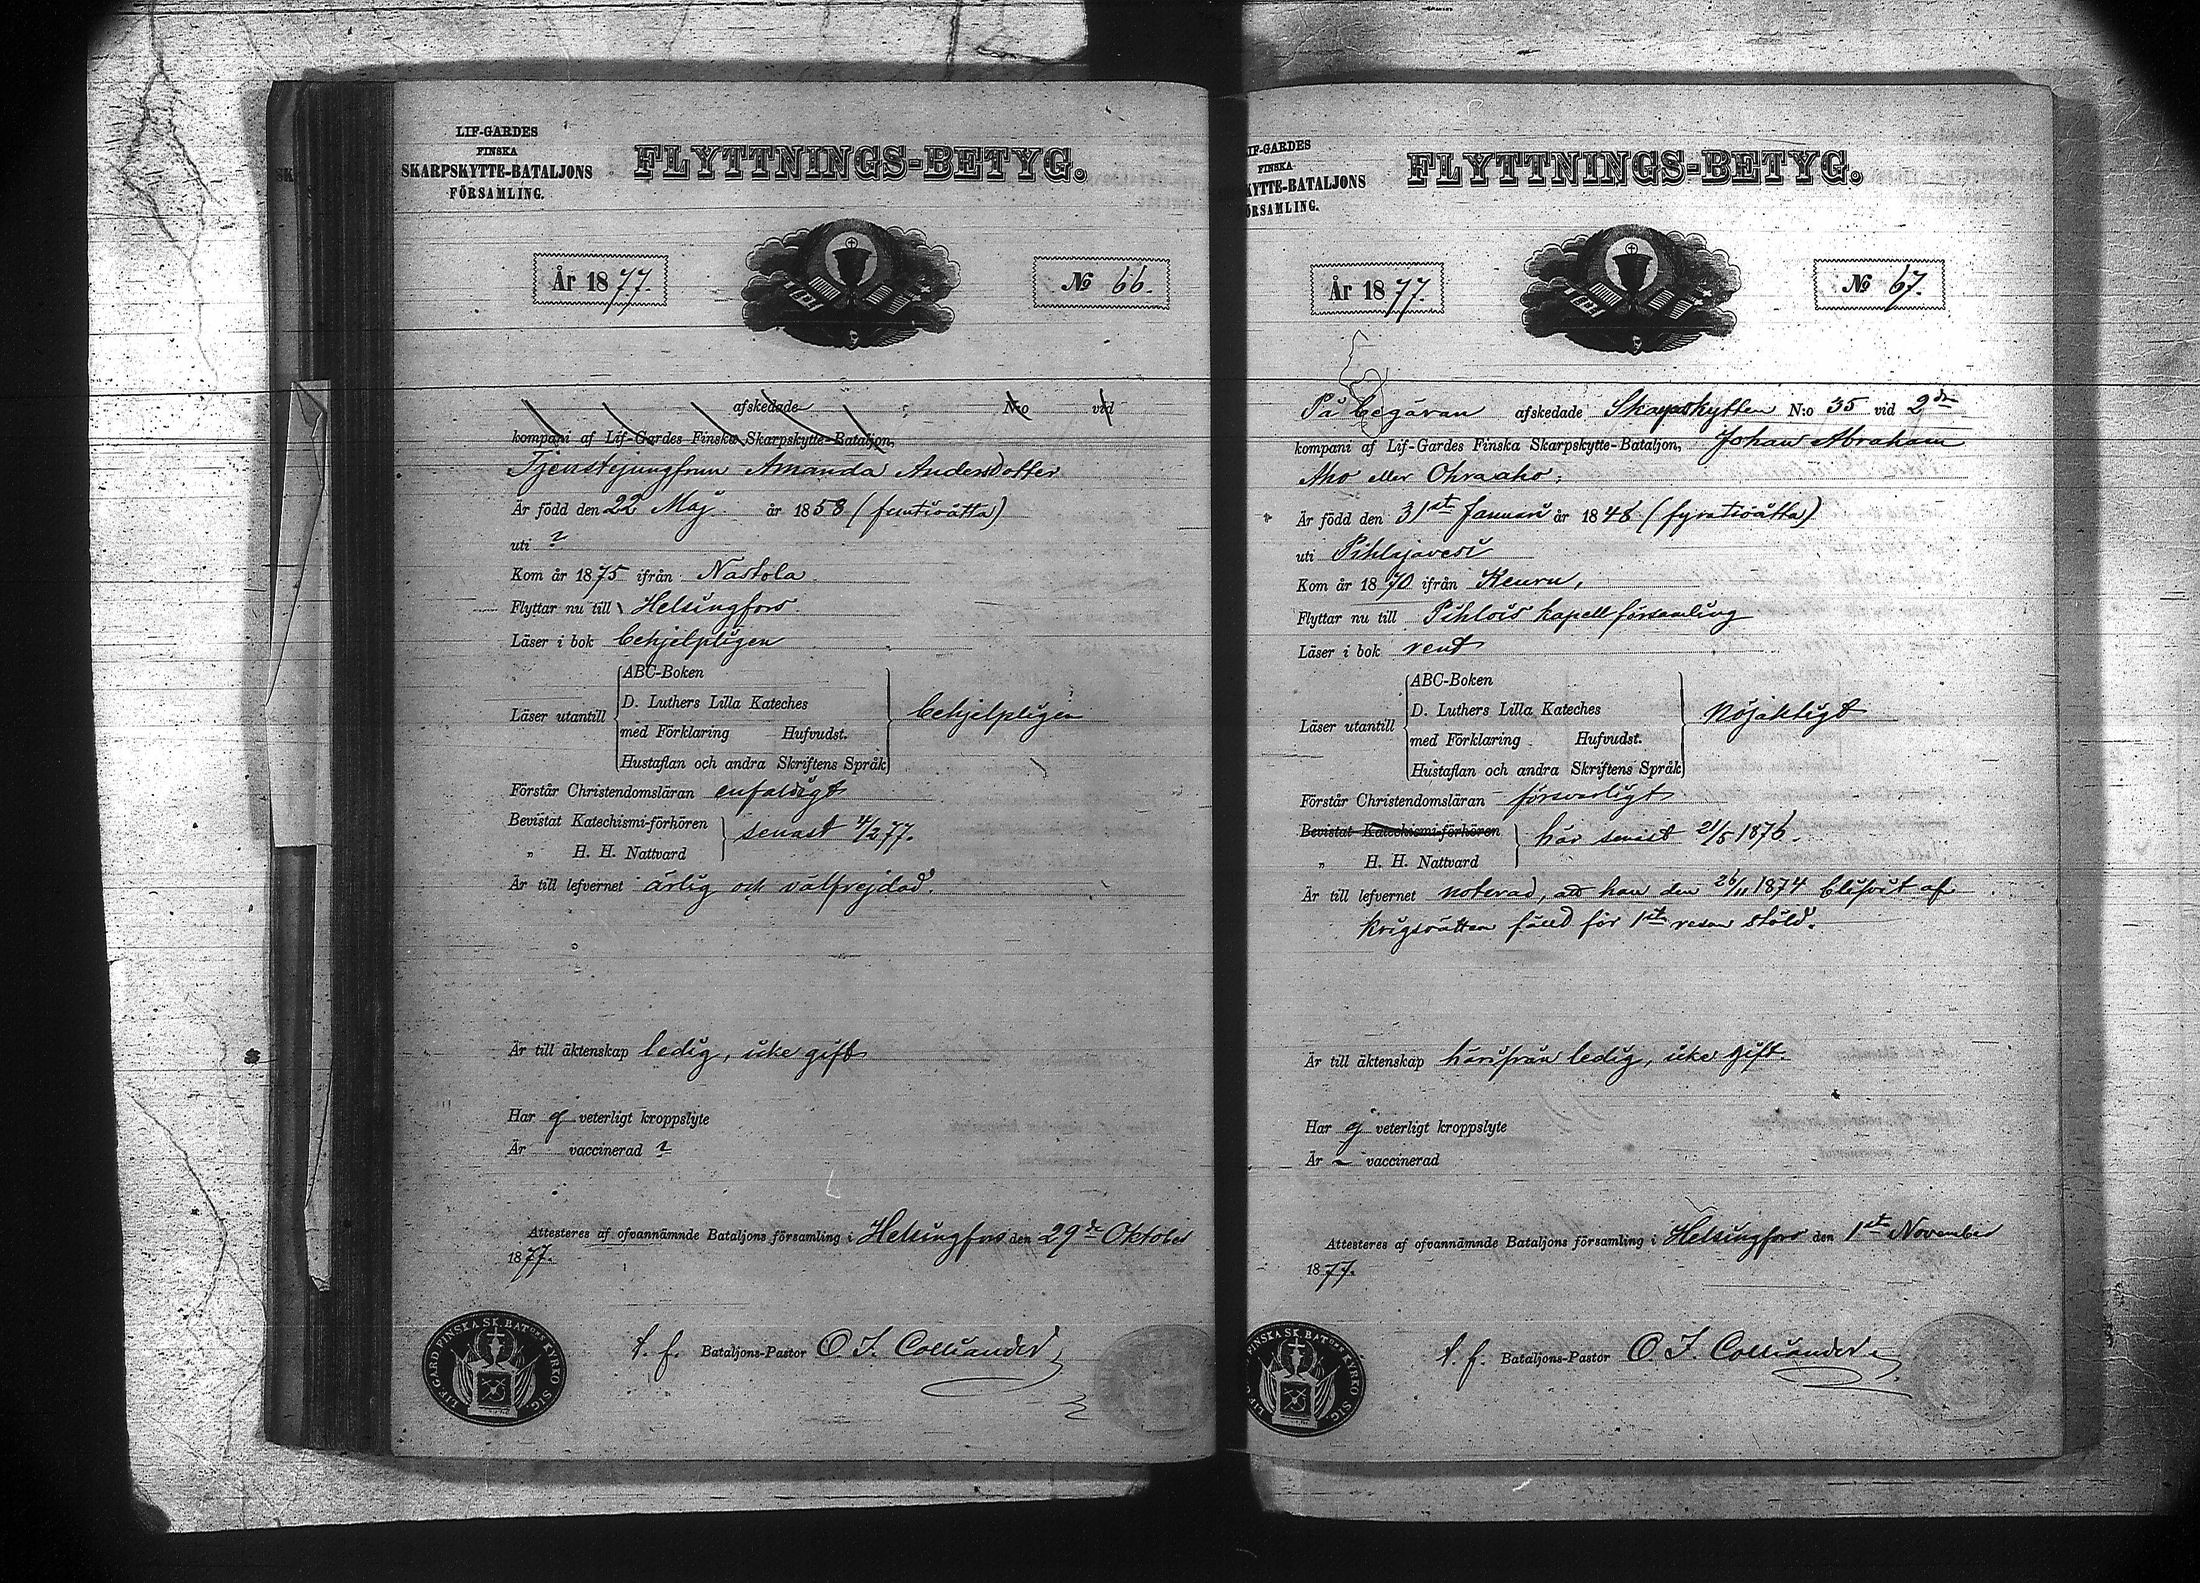 LIF-GARDES
FINSKA
SKARPSKYTTE-BATALJONS
FÖRSAMLING.
FLYTTNINGS-BETYG.
År 1877.
No 66.
afskedade N:o vid
kompani af Lif-Gardes Finska Skarpskytte-Bataljon,
Tjenstejungfrun Amanda Andersdotter
Är född den 22 Maj år 1858 (femtioåtta)
uti ?
Kom år 1875 ifrån Nastola
Flyttar nu till Helsingfors.
Läser i bok behjelpligen
ABC-Boken
D. Luthers Lilla Kateches
Läser utantill behjelpligen
med Förklaring Hufvudst.
Hustaflan och andra Skriftens Språk
Förstår Christendomsläran enfaldigt
Bevistat Katechismi-förhören senast 4/2 77.
„ H. H. Nattvard
Är till lefvernet ärlig och välfrejdad.
Är till äktenskap ledig, icke gift
Har ej veterligt kroppslyte
Är vaccinerad ?
Attesteres af ofvannämnde Bataljons församling i Helsingfors den 29de Oktober
1877.
t. f. Bataljons-Pastor O. I. Colliander
LIF. GARD. FINSKA SK. BATONS KYRKO SIG.
IF-GARDES
FINSKA
KYTTE-BATALJONS
ÖRSAMLING.
FLYTTNINGS-BETYG.
År 1877.
No 67.
På begäran afskedade Skarpskytten N:o 35 vid 2dra
kompani af Lif-Gardes Finska Skarpskytte-Bataljon, Johan Abraham
Aho eller Ohraaho;
Är född den 31st Januari år 1848 (fyratioåtta)
uti Pihlajavesi
Kom år 1870 ifrån Keuru,
Flyttar nu till Pihlois kapellförsamling
Läser i bok rent
ABC-Boken
D. Luthers Lilla Kateches
Läser utantill Nöjaktigt
med Förklaring Hufvudst.
Hustaflan och andra Skriftens Språk
Förstår Christendomsläran försvarligt
Bevistat Katechismi-förhören här senast 21/5 1876.
„ H. H. Nattvard
Är till lefvernet noterad, att han den 26/11 1874 blifvit af
krigsrätten fäld för 1sta resan stöld.
Är till äktenskap härifrån ledig, icke gift.
Har ej veterligt kroppslyte
Är ~ vaccinerad
Attesteres af ofvannämnde Bataljons församling i Helsingfors den 1sta November
1877.
t. f. Bataljons-Pastor O. I. Colliander
FINSKA SK. BATONS KYRKO SIG.